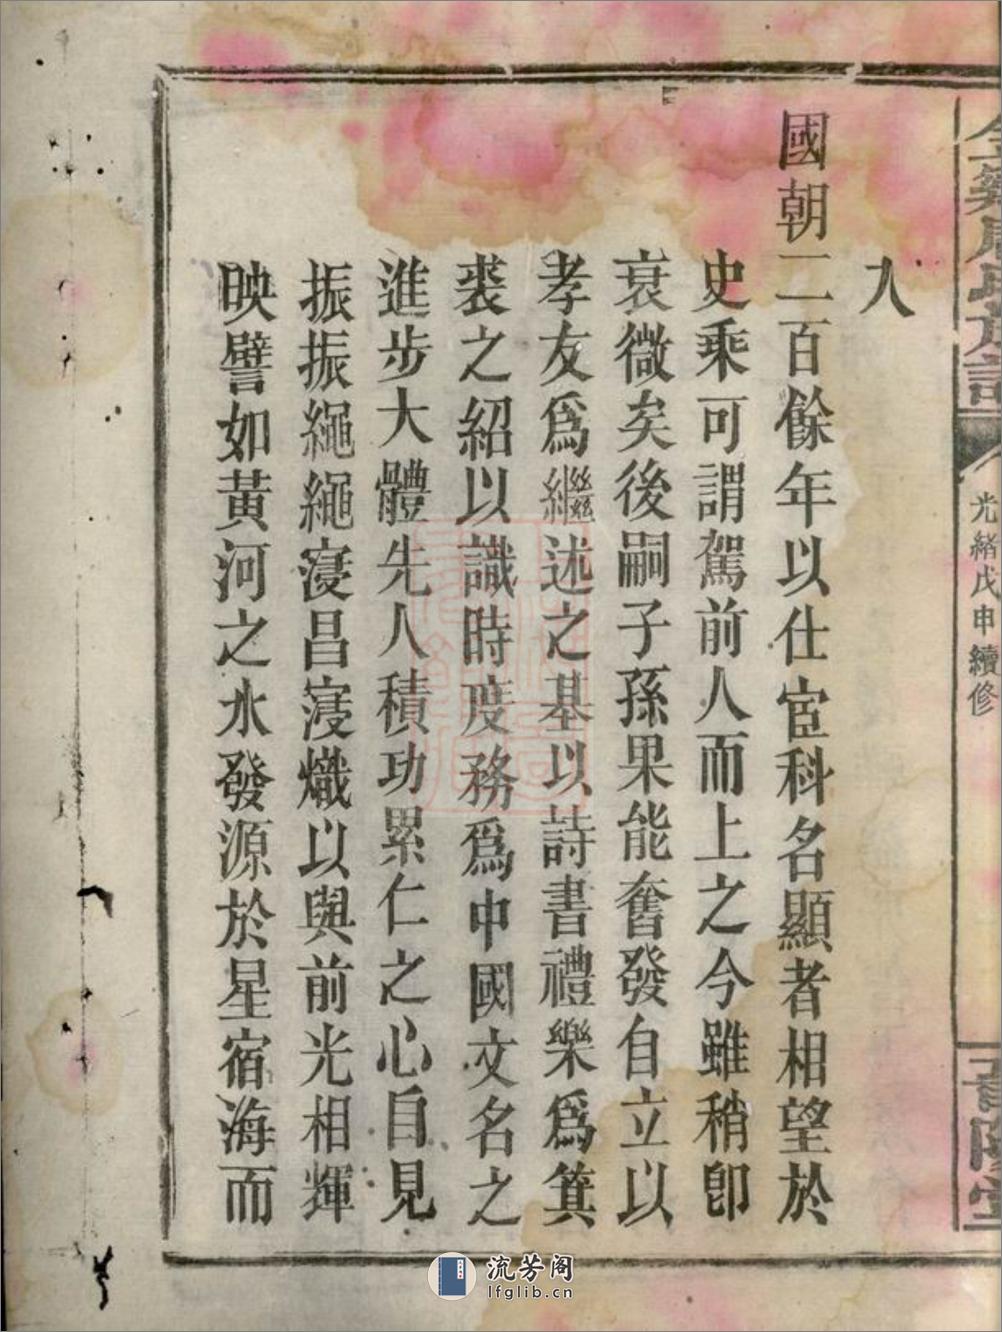 入
國朝二百餘年以仕宦科名顯者相望於
史乘可謂駕前人而上之今雖稍卽
衰微矣後嗣子孫果能奮發自立以
孝友爲繼述之基以詩書禮樂爲箕
裘之紹以識時度務爲中國文名之
進步大體先人積功累仁之心自見
振振繩繩寖昌寖熾以與前光相輝
映譬如黃河之水發源於星宿海而
光緒戊申續修
流芳阁
lfglib.cn